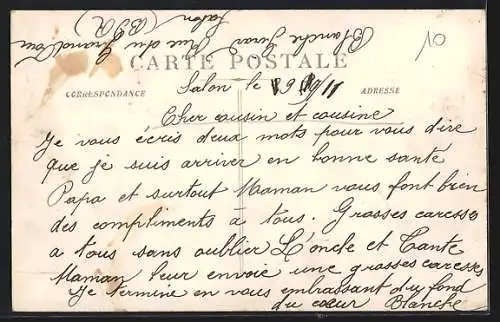 Blanche Girard Rue du Grenadou
Salon (B D R)
10
CARTE POSTALE
CORRESPONDANCE
ADRESSE
Salon le 9/11
Cher cousin et cousine
Je vous écris deux mots pour vous dire
que je suis arriver en bonne santé
Papa et surtout Maman vous font bien
des compliments à tous. Grosses caresses
a tous sans oublier L'oncle et Tante
Maman leur envoie une grosses caresses
Je termine en vous embrassant du fond
du cœur Blanche